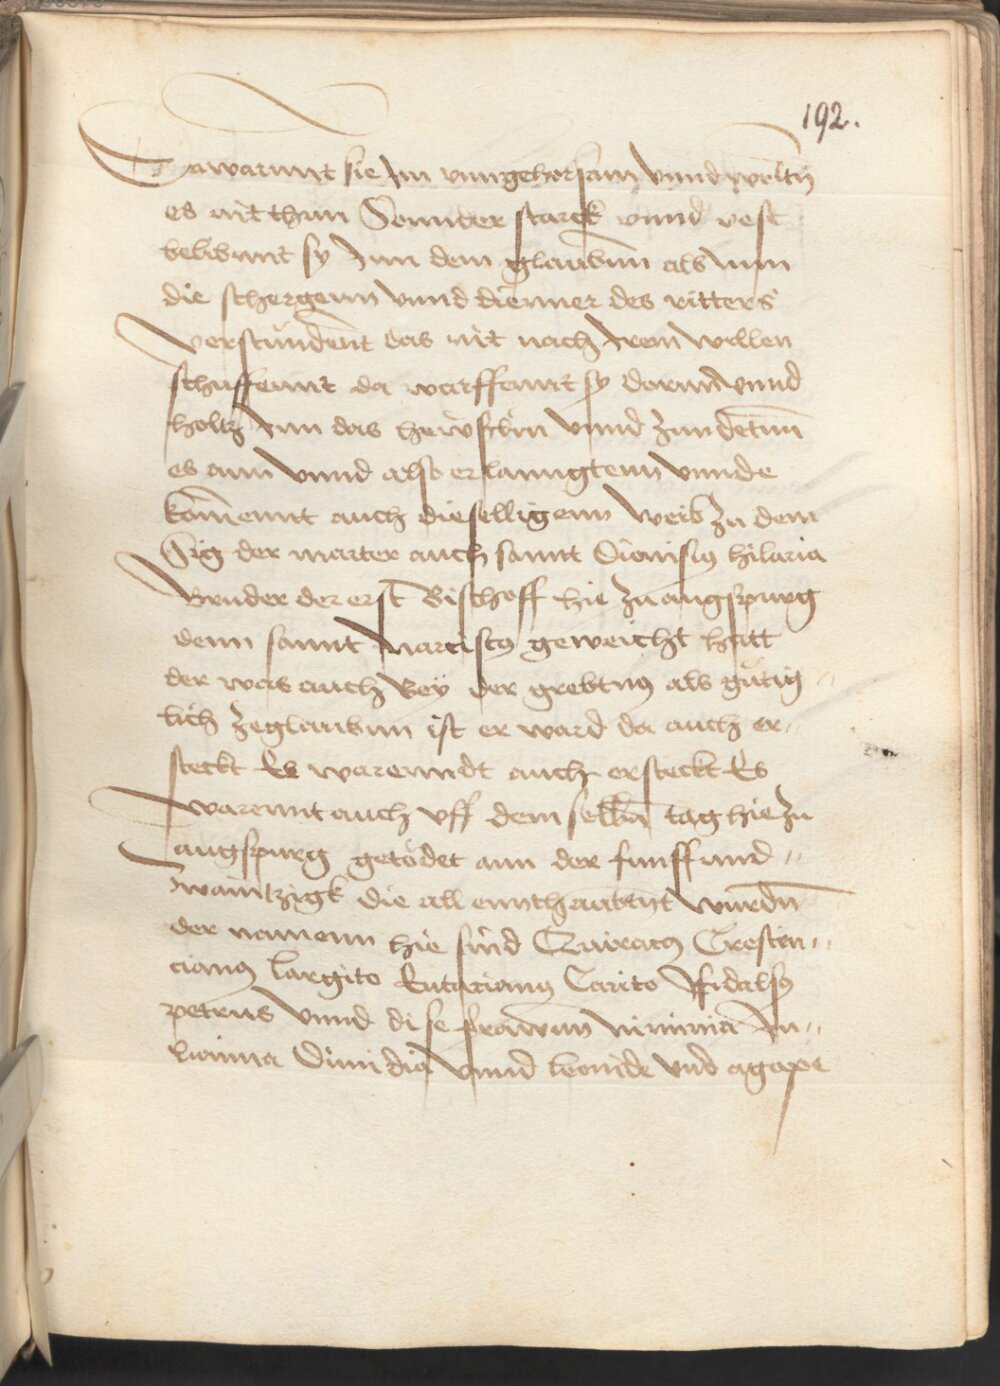 192.
Da warunt sie Im vnngehorsam vnnd woltn̄
es nit thun Sonnder starck vnnd vest
belibunt sy Inn dem glaubnn als nun
die schergenn vnnd dienner des ritters
verstundent das nit nach Irem willen
schuffennt da warffennt sy dornn vnnd
holtz Inn das hewslin vnnd zundetnn
es ann vnnd also erlanngtenn vnnde
komennt auch dieselligenn weib zu dem
Sig der marter auch sannt Dionisius hilaria
Bruder der erst Bischoff hie zu augspurg
denn sannt Narciscus geweicht hatt
der was auch bey der grebtnus als gütig-
lich zeglaubnn ist er ward da auch er-
steckt Es warenndt auch ersteckt Es
warennt auch vff dem selbnn tag hie zu
augspurg getödet ann der funff und
zwaintzigk die allennthaubtnt wurdn
der namenn hie sind Quiracus Crescen-
cianus largito Eutacianus Carito Vfidalus
petrus vnnd dise frawnn Niminia Ju-
lianna Dimidia vnnd leonide vnd agape